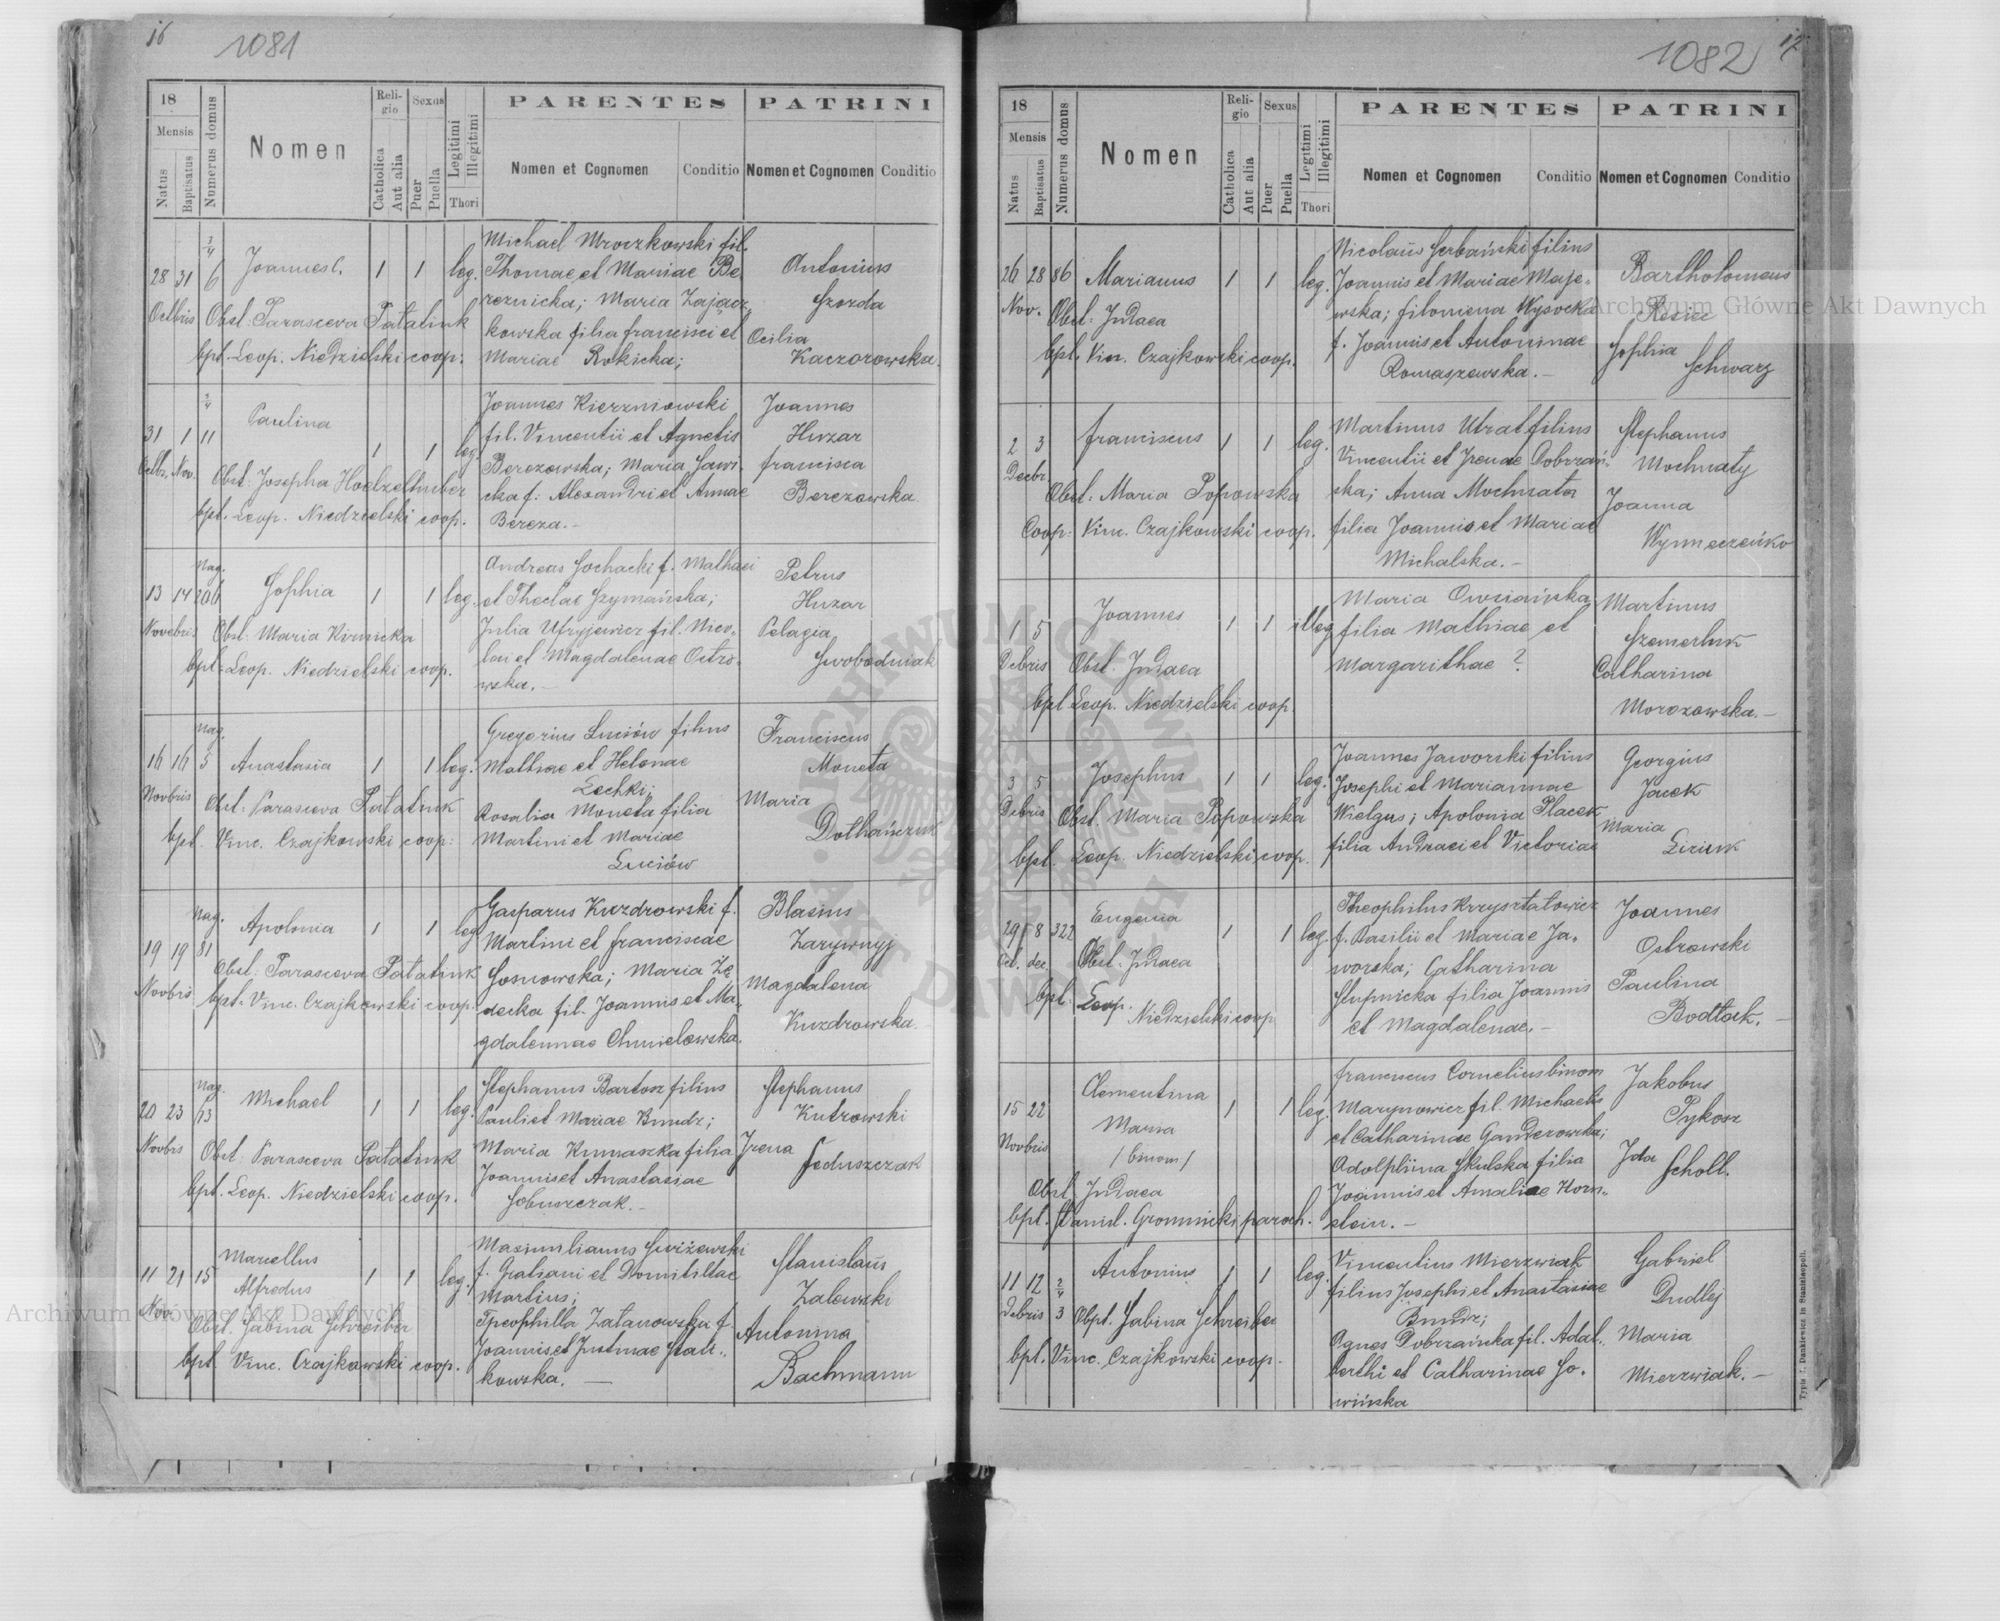 16
1081
18
Mensis
Natus
Baptisatus
Numerus domus
Nomen
Religio
Catholica
Aut alia
Sexus
Puer
Puella
Legitimi
Illegitimi
Thori
PARENTES
Nomen et Cognomen
Conditio
PATRINI
Nomen et Cognomen
Conditio
28 31 6 Joannes 1 1 leg.
Octbris Obst: Parasceva
bpt. Leop. Niedzielski coop:
Michael Mroczkowski fil.
Thomae et Mariae Be
reznicka; Maria Zającz
kowska filia francisci et
Mariae Rokicka;
Antonius
Szozda
Cecilia
Kaczorowska.
31 1 11 Paulina 1 1 leg.
Octb. Nov. Obst: Josepha
bpt. Leop. Niedzielski coop.
Joannes Kierzniowski
fil. Vincentii et Agnetis
Berezowska; Maria Sawi
cka f: Alexandri et Annae
Bereza.-
Joannes
Huzar
francisca
Berezowska
Nag.
13 14 206 Sophia 1 1 leg.
Novebris Obst: Maria
bpt. Leop. Niedzielski coop.
Andreas Sochacki f. Mathaei
et Theclae Szymańska;
Julia fil. Nico-
lai et Magdalenae Ostro-
wska.-
Petrus
Huzar
Pelagia
Swobodniak
Nag.
16 16 5 Anastasia 1 1 leg.
Novbris Obst: Parasceva
bpt. Vinc. Czajkowski coop:
Gregorius Luciów filius
Mathiae et Helenae
Lechki;
Rosalia Moneta filia
Martini et Mariae
Luciów
Franciscus
Moneta
Maria
Nag.
19 19 81 Apolonia 1 1 leg
Novbris Obst: Parasceva
bpt. Vinc. Czajkowski coop.
Gasparus Kuzdrowski f.
Martini et franciscae
Sosnowska; Maria
fil. Joannis et Ma-
gdalennae Chmielowska.
Blasius
Zarywnyj
Magdalena
Kuzdrowska.-
Nag.
20 23 13 Michael 1 1 leg.
Novbrs Obst: Parasceva
bpt. Leop. Niedzielski coop.
Stephanus Bartosz filius
Pauli et Mariae Bundz;
Maria filia
Joannis et Anastasiae
Stephanus
Kutrowski
Irena
feduszczak
11 21 15 Marcellus 1 1 leg.
Alfredus
Nov. Obst. Sabina Schreiber
bpt. Vinc. Czajkowski coop.
Maximilianus Swiżewski
f. Gratiani et Domitillae
Martius;
Theophilla f.
Joannis et Justinae
kowska.-
Stanislaus
Zalewski
Antonina
Bachmann
17
1082
18
Mensis
Natus
Baptisatus
Numerus domus
Nomen
Religio
Catholica
Aut alia
Sexus
Puer
Puella
Legitimi
Illegitimi
Thori
PARENTES
Nomen et Cognomen
Conditio
PATRINI
Nomen et Cognomen
Conditio
26 28 86 Marianus 1 1 leg.
Nov. Obst. Judaea
bpt. Vinc. Czajkowski coop.
Nicolaus Serbański filius
Joannis et Mariae Maje-
wska; filomena Wysocka
f. Joannis et Antoninae
Romaszewska.-
Bartholomeus
Sophia
Schwarz
2 3 franciscus 1 1 leg.
Decbr. Obst: Maria Popowska
Coop: Vinc. Czajkowski coop.
Martinus Utrat filius
Vincentii et Irenae Dobrzań-
ska; Anna Mochnata
filia Joannis et Mariae
Michalska.-
Stephanus
Mochnaty
Joanna
1 5 Joannes 1 1 illeg
Debris Obst. Judaea
bpt Leop. Niedzielski coop.
Maria Owsiańska
filia Mathiae et
Margarithae ?
Martinus
Catharina
Morozowska.-
3 5 Josephus 1 1 leg.
Debris Obst. Maria Popowska
bpt. Leop. Niedzielski coop.
Joannes Jaworski filius
Josephi et Mariannae
Wielgus; Apolonia Placek
filia Andraei et Victoriae
Georgius
Jacek
Maria
29 8 322 Eugenia 1 1 leg.
Oct. dec. Obst. Judaea
bpt. Leop.
Niedzielski coop
Theophilus Krzyształowicz
f. Basilii et Mariae Ja-
worska; Catharina
Słupnicka filia Joannis
et Magdalenae.-
Joannes
Ostrowski
Paulina
Bodłak.-
15 22 Clementina 1 1 leg.
Maria
Novbris /binom/
Obst. Judaea
bpt. Stanisl. Gromnicki paroch.
franciscus Cornelius binom
Marynowicz fil. Michaelis
et Catharinae Ganderowska;
Adolphina Skulska filia
Joannis et Amaliae Horn-
stein.-
Jakobus
Pykosz
Ida
Scholl.
11 12 Antonius 1 1 leg.
Debris 3 Obst. Sabina Schreiber
bpt. Vinc. Czajkowski coop.
Vincentius Mierzwiak
filius Josephi et Anastasiae
Bundz;
Agnes Dobrzańska fil. Adal-
berthi et Catharinae So-
wińska
Gabriel
Dudlej
Maria
Mierzwiak.-
Archiwum Główne Akt Dawnych
Archiwum Główne Akt Dawnych